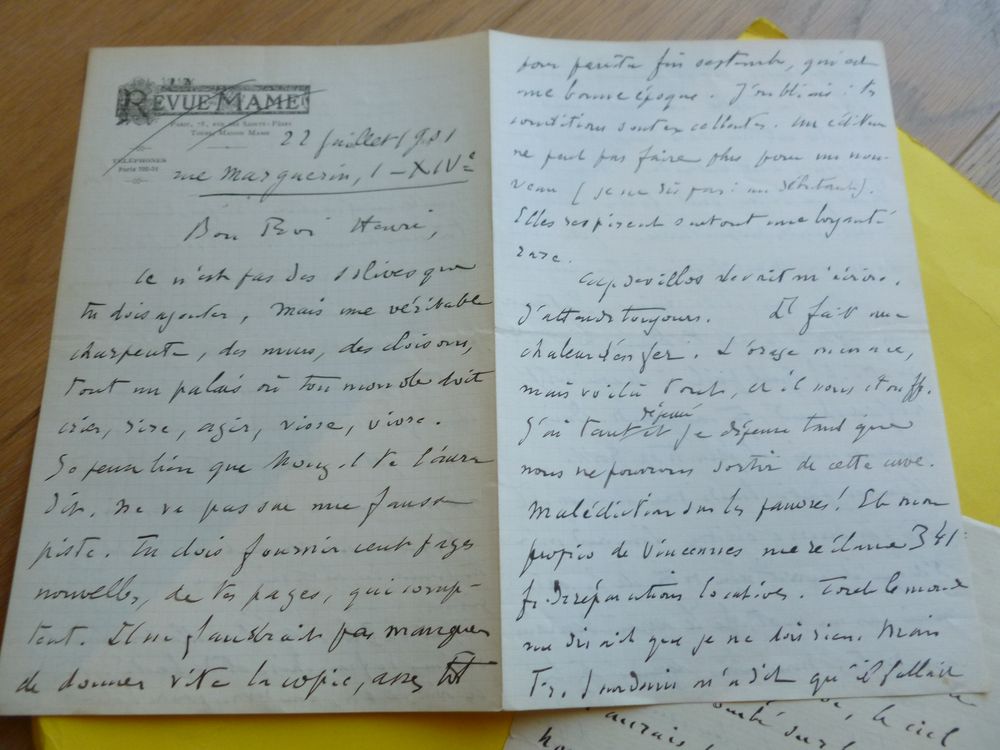 LA
REVUE MAME
PARIS, 78, RUE DES SAINTS-PÈRES
TOURS, MAISON MAME
TÉLÉPHONES
22 juillet 1901
rue Marguerin, 1 - XIVe
Bon Roi Henri,
Ce n'est pas des solives que
tu dois ajouter, mais une véritable
charpente, des murs, des cloisons,
tout un palais où ton monde doit
crier, rire, agir, vivre, vivre.
Je pense bien que te l'aura
dit. Ne va pas sur une fausse
piste. Tu dois fournir cent pages
nouvelles, de tes pages, qui comp-
tent. Il ne faudrait pas manquer
de donner vite la copie, assez tôt
pour paraître fin septembre, qui est
une bonne époque. J'oubliais : tes
conditions sont excellentes. Un éditeur
ne peut pas faire plus pour un nou-
veau (je ne dis pas : un débutant).
Elles respirent surtout une loyauté
rare.
devait m'écrire.
J'attends toujours. Il fait une
chaleur d'enfer. L'orage menace,
mais voilà tout, et il nous étouffe.
J'ai tant déjà dépensé tant que
nous ne pouvons sortir de cette cuve.
Malédiction sur les pauvres ! Et mon
proprio de Vincennes me réclame 341
fr. de réparations locatives. Tout le monde
me disait que je ne dois rien. Mais
Fr. Jourdain m'a dit qu'il fallait
le ciel
sur